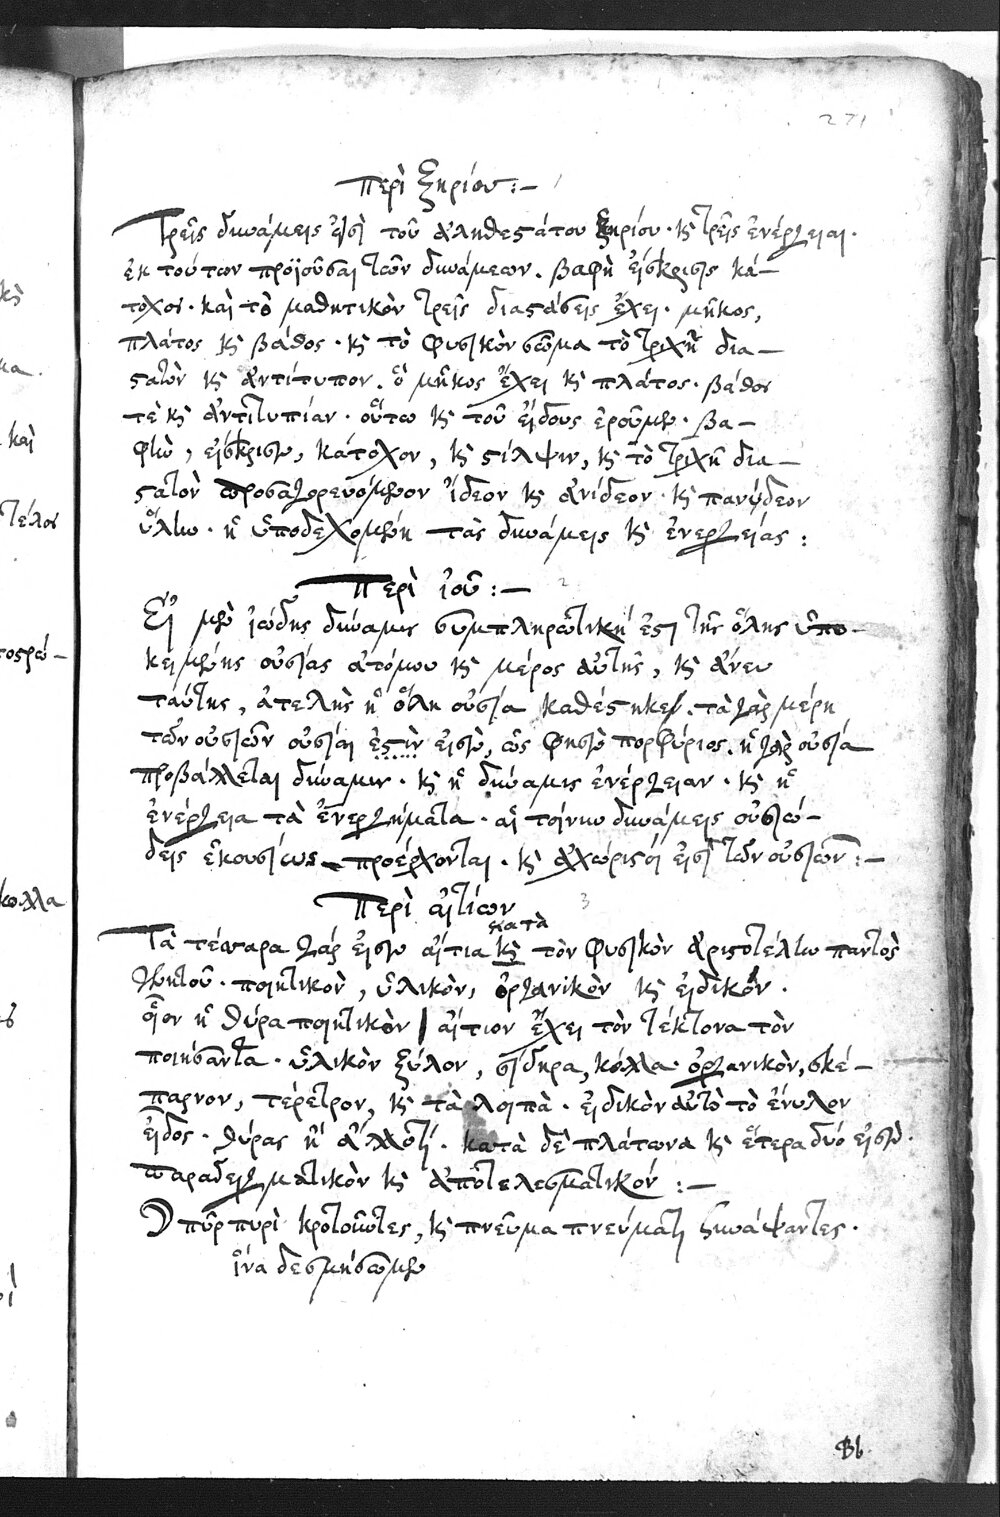 271
Περὶ ξηρίου :—
Τρεῖς δυνάμεις εἰσὶ τοῦ ἀληθεστάτου ξηρίου· καὶ τρεῖς ἐνέργειαι·
ἐκ τούτων προϊοῦσαι τῶν δυνάμεων. βαφὴ εἴσκρισις κά-
τοχος· καὶ τὸ μαθητικὸν τρεῖς διαστάσεις ἔχει· μῆκος,
πλάτος καὶ βάθος· καὶ τὸ φυσικὸν σῶμα τὸ τριχῆ δια-
στατὸν καὶ ἀντίτυπον. ὃ μῆκος ἔχει καὶ πλάτος· βάθος
τὲ καὶ ἀντιτυπίαν· οὕτω καὶ τοῦ εἴδους ἐροῦμεν· βα-
φὴν, εἴσκρισιν, κάτοχον, καὶ στίλψιν, καὶ τὸ τριχῆ δια-
στατὸν προσαγορευόμενον ἴδεον καὶ ἀνίδεον· καὶ πανίδεον
ὕλην· ἢ ὑποδεχομένη τὰς δυνάμεις καὶ ἐνεργείας :
Περὶ ἰοῦ :—
Εἰ μὲν ἰώδης δύναμις συμπληρωτική ἐστι τῆς ὅλης ὑπο-
κειμένης οὐσίας ἀτόμου καὶ μέρος αὐτῆς, καὶ ἄνευ
ταύτης, ἀτελὴς ἡ ὅλη οὐσία καθέστηκε. τὰ γὰρ μέρη
τῶν οὐσιῶν οὐσίαι ἐστὶν εἰσὶν, ὥς φησιν πορφύριος. ἡ γὰρ οὐσία
προβάλλεται δύναμιν· καὶ ἡ δύναμις ἐνέργειαν· καὶ ἡ
ἐνέργεια τὰ ἐνεργήματα· αἱ τοίνυν δυνάμεις οὐσιώ-
δεις ἑκουσίως προέρχονται· καὶ ἀχώριστοί εἰσι τῶν οὐσιῶν :—
Περὶ αἰτίων
κατὰ
Τὰ τέσσαρα γάρ εἰσιν αἴτια καὶ τὸν φυσικὸν ἀριστοτέλην παντὸς
γενητοῦ· ποιητικὸν, ὑλικὸν, ὀργανικὸν καὶ εἰδικόν·
οἷον ἡ θύρα ποιητικὸν αἴτιον ἔχει τὸν τέκτονα τὸν
ποιήσαντα· ὑλικὸν ξύλον, σίδηρα, κόλλα· ὀργανικὸν, σκέ-
παρνον, τέρετρον, καὶ τὰ λοιπά· εἰδικὸν αὐτὸ τὸ ἔνυλον
εἶδος· θύρας ἢ ἄλλο τι· κατὰ δὲ πλάτωνα καὶ ἕτερα δύο εἰσὶν·
παραδειγματικὸν καὶ ἀποτελεσματικόν :—
πῦρ πυρὶ κροτοῦντες, καὶ πνεῦμα πνεύματι συνάψαντες·
ἵνα δεσμήσωμεν
Bb